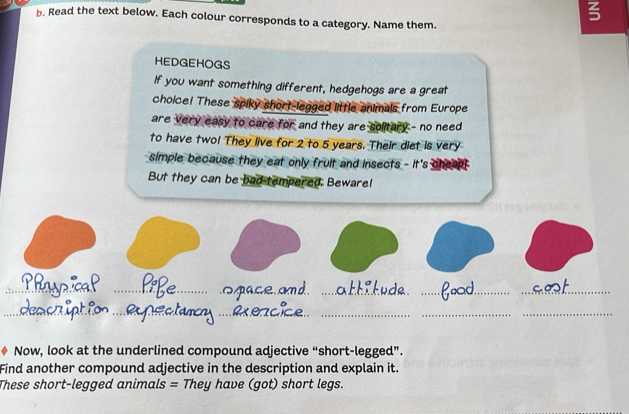 b. Read the text below. Each colour corresponds to a category. Name them.
UN
HEDGEHOGS
If you want something different, hedgehogs are a great
choice! These spiky short-legged little animals from Europe
are very easy to care for and they are solitary - no need
to have two! They live for 2 to 5 years. Their diet is very
simple because they eat only fruit and insects - it's cheap!
But they can be bad-tempered. Beware!
Physical life space and attitude food cost
description expectancy exercice
Now, look at the underlined compound adjective “short-legged”.
Find another compound adjective in the description and explain it.
These short-legged animals = They have (got) short legs.